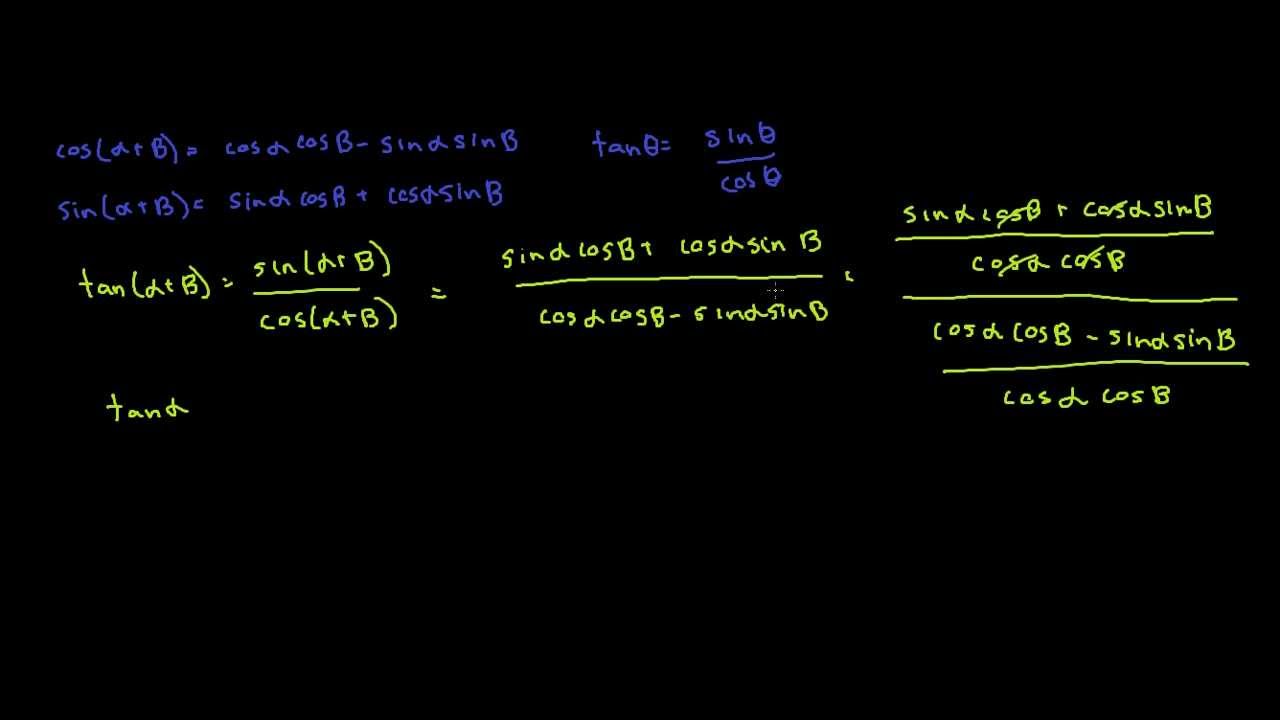 cos(α+B)= cosα cosB - sinα sinB
tanθ= sinθ / cosθ
sin(α+B)= sinα cosB + cosα sinB
tan(α+B) = sin(α+B) / cos(α+B) = sinα cosB + cosα sin B / cosα cosB - sinα sinB
sinα cosB + cosα sinB
cosα cosB
cosα cosB - sinα sinB
cosα cosB
tanα